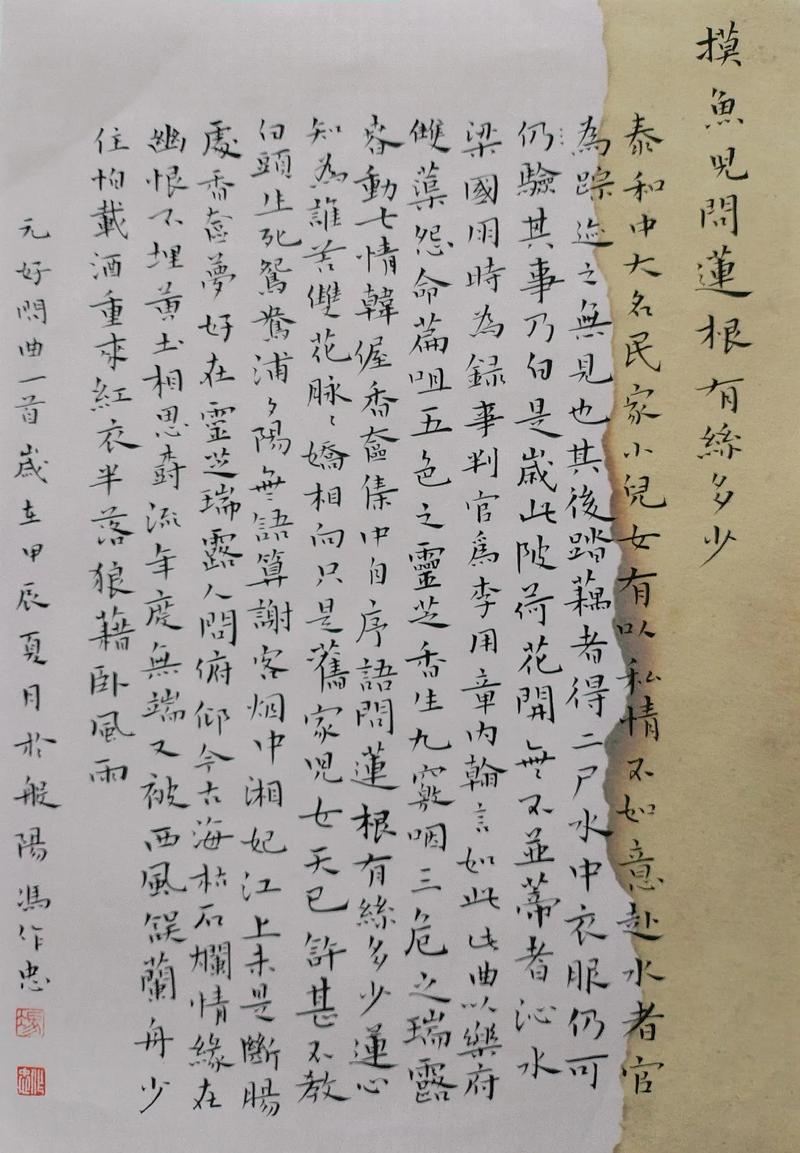 摸魚兒問蓮根有絲多少
泰和中大名民家小兒女有以私情不如意赴水者官
為踪迹之無見也其後踏藕者得二尸水中衣服仍可
仍驗其事乃白是歲此陂荷花開無不並蒂者沁水
梁國用時為録事判官爲李用章内翰言如此此曲以樂府
雙蕖怨命篇咀五色之靈芝香生九竅咽三危之瑞露
春動七情韓偓香奩集中自序語問蓮根有絲多少蓮心
知為誰苦雙花脉〻嬌相向只是舊家兒女天已許甚不教
白頭生死鴛鴦浦夕陽無語算謝客烟中湘妃江上未是斷腸
處香奩夢好在靈芝瑞露人間俯仰今古海枯石爛情緣在
幽恨不埋黃土相思樹流年度無端又被西風誤蘭舟少
住怕載酒重來紅衣半落狼藉卧風雨
元好問曲一首歲在甲辰夏月於般陽馮作忠